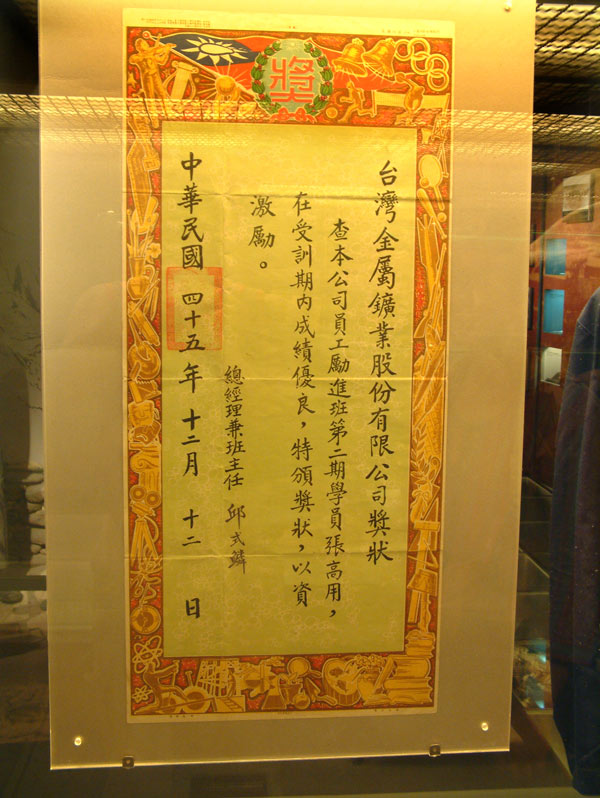 獎
台灣金屬鑛業股份有限公司獎狀
查本公司員工勵進班第二期學員張高用，
在受訓期內成績優良，特頒獎狀，以資
激勵。
總經理兼班主任 邱式鱗
中華民國 四十五年 十二月 十二 日